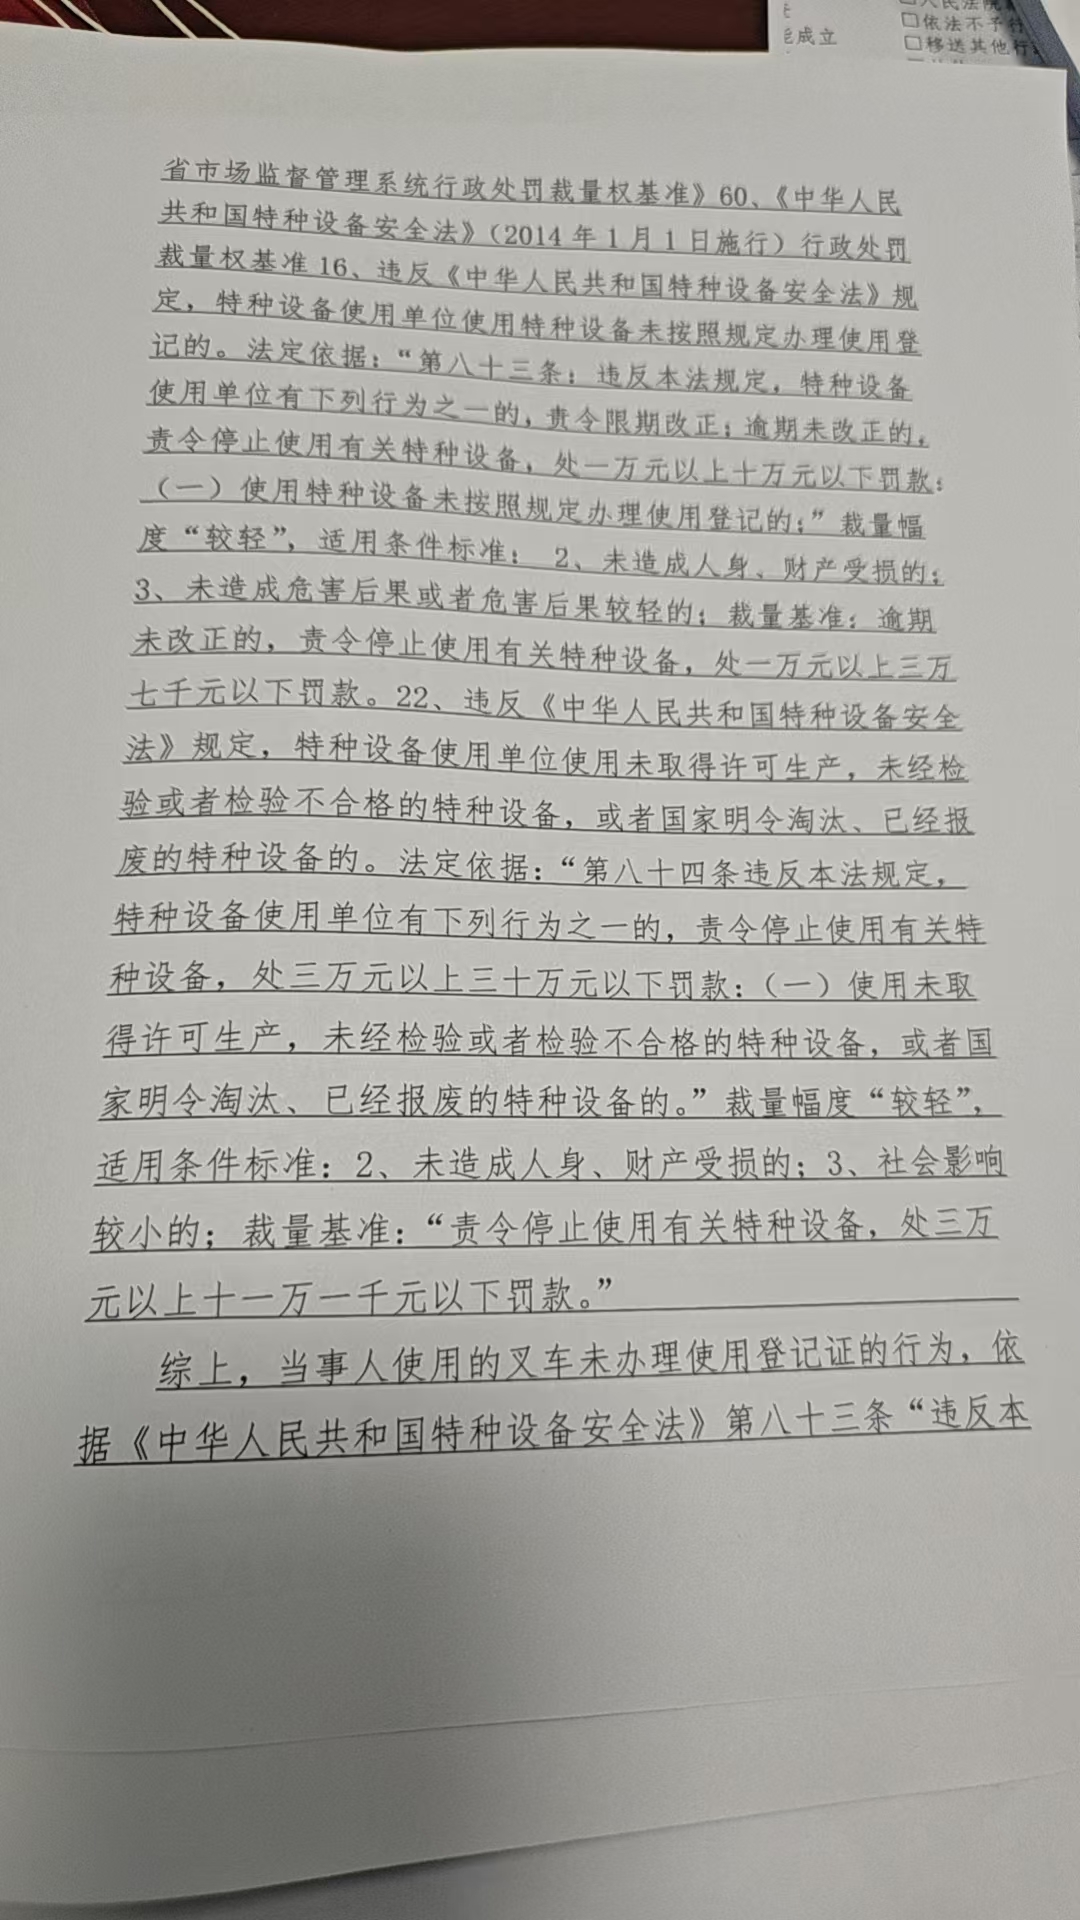 能成立
□依法不予行
□移送其他行
省市场监督管理系统行政处罚裁量权基准》60、《中华人民
共和国特种设备安全法》（2014 年 1 月 1 日施行）行政处罚
裁量权基准 16、违反《中华人民共和国特种设备安全法》规
定，特种设备使用单位使用特种设备未按照规定办理使用登
记的。法定依据：“第八十三条：违反本法规定，特种设备
使用单位有下列行为之一的，责令限期改正；逾期未改正的，
责令停止使用有关特种设备，处一万元以上十万元以下罚款：
（一）使用特种设备未按照规定办理使用登记的；”裁量幅
度“较轻”，适用条件标准： 2、未造成人身、财产受损的；
3、未造成危害后果或者危害后果较轻的；裁量基准：逾期
未改正的，责令停止使用有关特种设备，处一万元以上三万
七千元以下罚款。22、违反《中华人民共和国特种设备安全
法》规定，特种设备使用单位使用未取得许可生产，未经检
验或者检验不合格的特种设备，或者国家明令淘汰、已经报
废的特种设备的。法定依据：“第八十四条违反本法规定，
特种设备使用单位有下列行为之一的，责令停止使用有关特
种设备，处三万元以上三十万元以下罚款：（一）使用未取
得许可生产，未经检验或者检验不合格的特种设备，或者国
家明令淘汰、已经报废的特种设备的。”裁量幅度“较轻”，
适用条件标准：2、未造成人身、财产受损的；3、社会影响
较小的；裁量基准：“责令停止使用有关特种设备，处三万
元以上十一万一千元以下罚款。”
综上，当事人使用的叉车未办理使用登记证的行为，依
据《中华人民共和国特种设备安全法》第八十三条“违反本